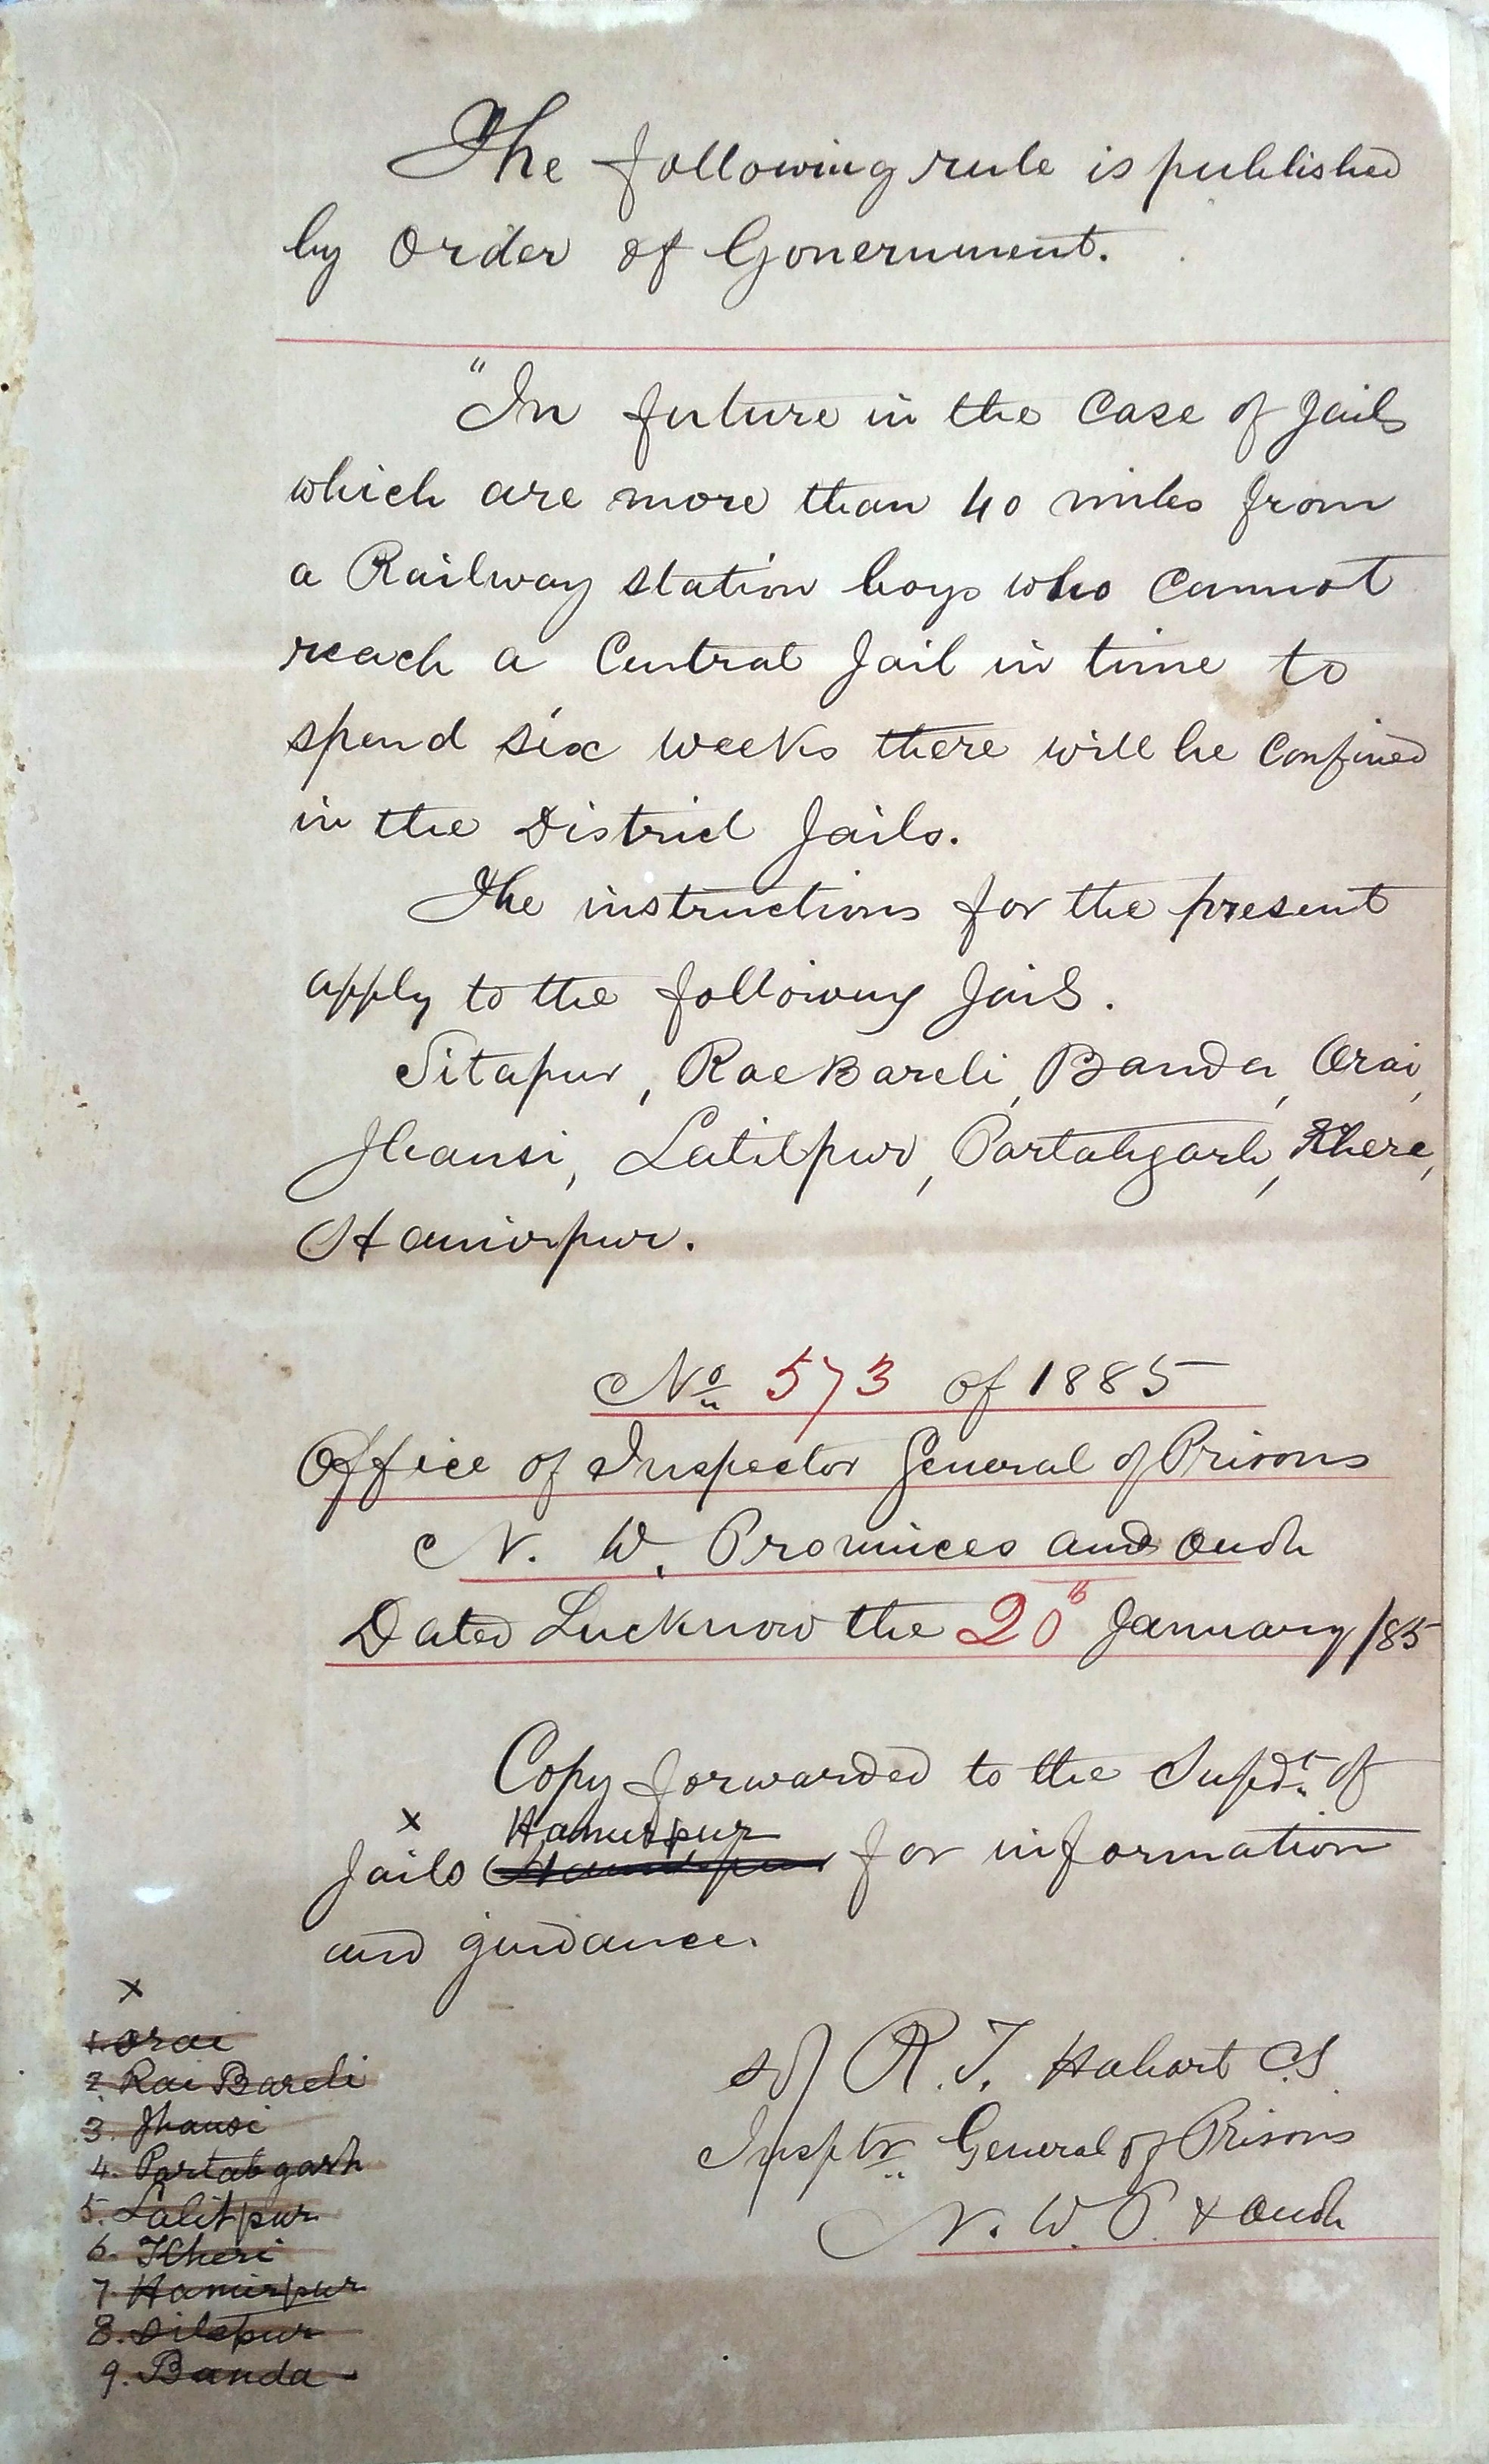 The following rule is published
by Order of Government.
"In future in the case of Jails
which are more than 40 miles from
a Railway station boys who cannot
reach a Central Jail in time to
spend six weeks there will be confined
in the District Jails.
The instructions for the present
apply to the following Jails.
Sitapur, Rae Bareli, Banda, Orai,
Jhansi, Lalitpur, Partabgarh, Khere,
Hamirpur.
No 573 of 1885
Office of Inspector General of Prisons
N. W. Provinces and Oudh
Dated Lucknow the 20th January/85
Copy forwarded to the Supdt. of
x Hamirpur
Jails Hamirpur for information
and guidance.
x
1. Orai
2. Rai Bareli
3. Jhansi
4. Partabgarh
5. Lalitpur
6. Kheri
7. Hamirpur
8. Sitapur
9. Banda
sd/ R. T. Hobart C.S.
Insptr. General of Prisons
N. W. P. & Oudh